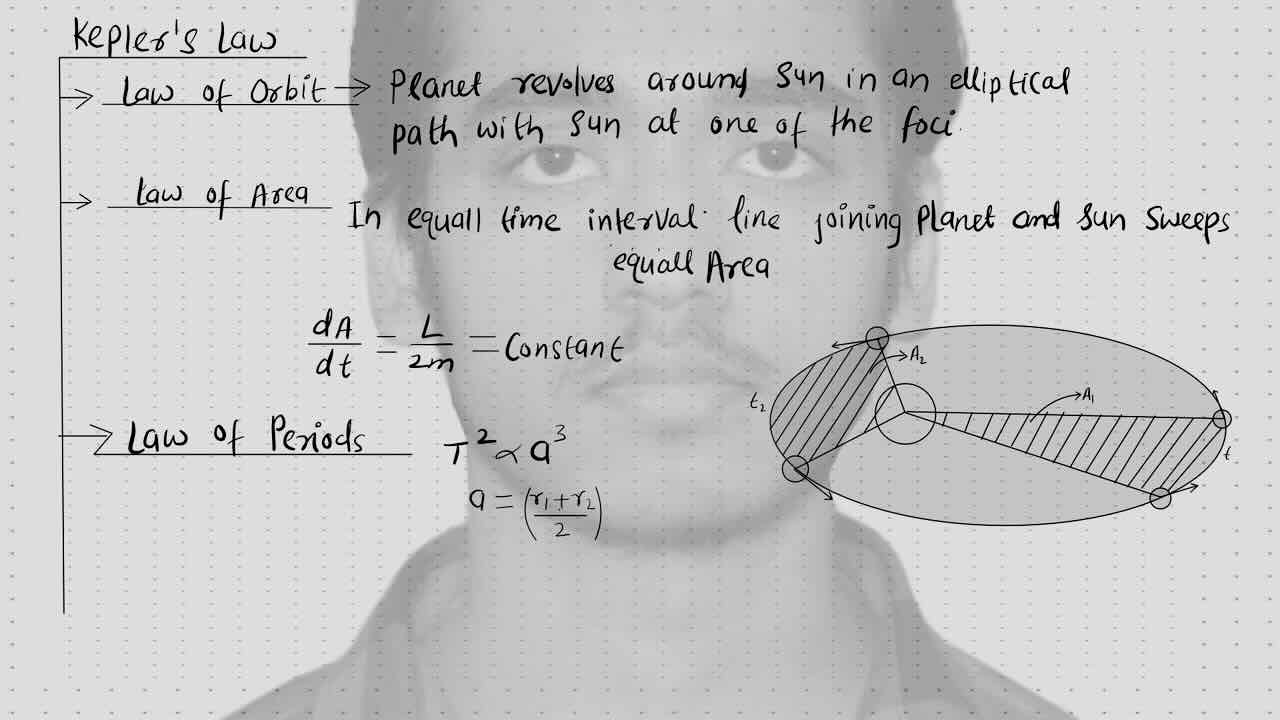 Kepler's Law
Law of Orbit → Planet revolves around Sun in an elliptical
path with Sun at one of the foci.
Law of Area
In equall time interval line joining Planet and Sun Sweeps
equall Area
dA/dt = L/2m = Constant
A₂
A₁
t₂
t
Law of Periods
T² ∝ a³
a = (r₁+r₂/2)